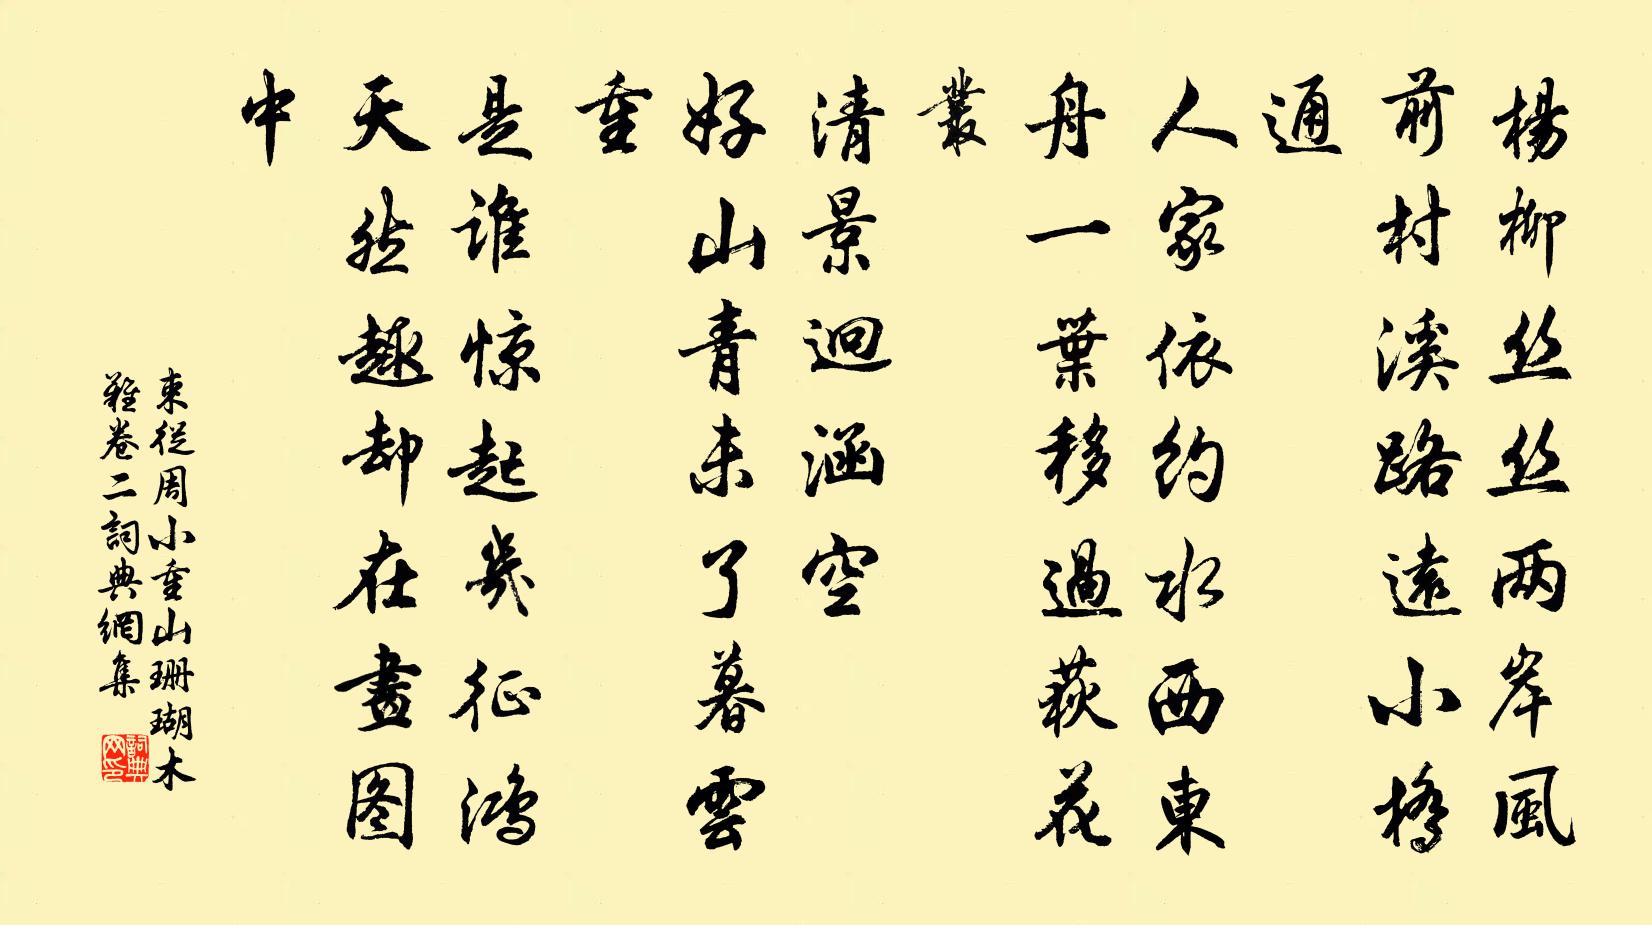 楊柳丝丝两岸風
前村溪路遠小橋
通
人家依約水西東
舟一葉移過荻花
叢
清景迥涵空
好山青未了暮雲
重
是谁惊起幾征鴻
天然趣却在畫图
中
束從周小重山珊瑚木
難卷二詞典網集
詞典
网印